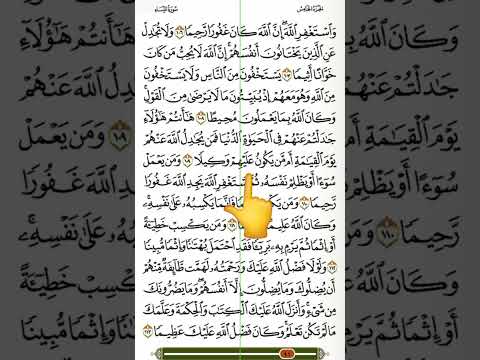 الجزء الخامس
سورة النساء
وَٱسْتَغْفِرِ ٱللَّهَ إِنَّ ٱللَّهَ كَانَ غَفُورًا رَّحِيمًا ١٠٦ وَلَا تُجَٰدِلْ
عَنِ ٱلَّذِينَ يَخْتَانُونَ أَنفُسَهُمْ إِنَّ ٱللَّهَ لَا يُحِبُّ مَن كَانَ
خَوَّانًا أَثِيمًا ١٠٧ يَسْتَخْفُونَ مِنَ ٱلنَّاسِ وَلَا يَسْتَخْفُونَ
مِنَ ٱللَّهِ وَهُوَ مَعَهُمْ إِذْ يُبَيِّتُونَ مَا لَا يَرْضَىٰ مِنَ ٱلْقَوْلِ
وَكَانَ ٱللَّهُ بِمَا يَعْمَلُونَ مُحِيطًا ١٠٨ هَٰٓأَنتُمْ هَٰٓؤُلَآءِ
جَٰدَلْتُمْ عَنْهُمْ فِي ٱلْحَيَوٰةِ ٱلدُّنْيَا فَمَن يُجَٰدِلُ ٱللَّهَ عَنْهُمْ
يَوْمَ ٱلْقِيَٰمَةِ أَم مَّن يَكُونُ عَلَيْهِمْ وَكِيلًا ١٠٩ وَمَن يَعْمَلْ
سُوٓءًا أَوْ يَظْلِمْ نَفْسَهُۥ ثُمَّ يَسْتَغْفِرِ ٱللَّهَ يَجِدِ ٱللَّهَ غَفُورًا
رَّحِيمًا ١١٠ وَمَن فَإِنَّمَا يَكْسِبُهُۥ عَلَىٰ نَفْسِهِۦ
وَكَانَ ٱللَّهُ عَلِيمًا ١١١ وَمَن يَكْسِبْ خَطِيٓـَٔةً
أَوْ إِثْمًا ثُمَّ يَرْمِ بِهِۦ بَرِيٓـًٔا فَقَدِ ٱحْتَمَلَ بُهْتَٰنًا وَإِثْمًا مُّبِينًا
١١٢ وَلَوْلَا فَضْلُ ٱللَّهِ عَلَيْكَ وَرَحْمَتُهُۥ لَهَمَّت طَّآئِفَةٌ مِّنْهُمْ
أَن يُضِلُّوكَ وَمَا يُضِلُّونَ إِلَّآ أَنفُسَهُمْ وَمَا يَضُرُّونَكَ
مِن شَيْءٍ وَأَنزَلَ ٱللَّهُ عَلَيْكَ ٱلْكِتَٰبَ وَٱلْحِكْمَةَ وَعَلَّمَكَ
مَا لَمْ تَكُن تَعْلَمُ وَكَانَ فَضْلُ ٱللَّهِ عَلَيْكَ عَظِيمًا ١١٣
٩٦